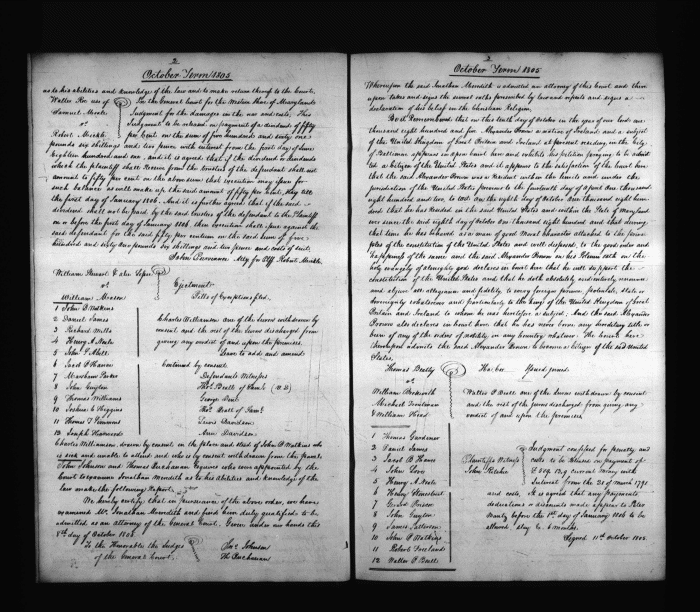 2
October Term 1805
as to his abilities and knowledge of the law and to make return thereof to the Court.
Walter Roe use of
Samuel Moale
vs
Robert Mickle
In the General Court for the Western Shore of Maryland
Judgment for the damages in the nar and costs. This
Judgment to be released on payment of a dividend of fifty
per Cent on the sum of five hundred and sixty one
pounds six shillings and two pence with interest from the first day of June
Eighteen hundred and one, and it is agreed that if the dividend or dividends
which the plaintiff shall receive from the trustees of the defendant shall not
amount to fifty per cent on the above sum that execution may issue for
such balance as will make up the said amount of fifty per cent. Stay till
the first day of January 1806. And it is further agreed that if the said
dividend shall not be paid by the said trustees of the defendant to the Plaintiff
on or before the first day of January 1806, then execution shall issue against the
said defendant for the said fifty per centum on the said sum of five
hundred and sixty one pounds six shillings and two pence and costs of suit.
John Purviance Atty for Plff Robert Mickle
William Stewart & als Lessee
vs
William Mason
Ejectment
Bills of Exceptions filed.
1 John B Watkins
2 Daniel James
3 Richard Mills
4 Henry A Neale
5 John T Abell
6 Jacob P Haven
7 Marsham Parker
8 John Guyton
9 Thomas Williams
10 Joshua C Higgins
11 Thomas T Simmons
12 Joseph Harwood
Charles Williamson one of the Jurors withdrawn by
consent and the rest of the Jurors discharged from
giving any verdict of and upon the premises.
Leave to add and amend
Continued by consent.
Defendants Witnesses
George Dent
Levis Davidson
Ann Davidson
Charles Williamson drawn by consent in the place and stead of John B Watkins who
is sick and unable to attend and who is by consent withdrawn from the pannel
John Johnson and Thomas Buchanan Esquires who were appointed by the
Court to examine Jonathan Meredith as to his abilities and knowledge of the
law make the following Report.
We hereby certify that in pursuance of the above order, we have
examined Mr. Jonathan Meredith and find him duly qualified to be
admitted as an attorney of the General Court. Given under our hands this
8th day of October 1805
To the Honorable the Judges
of the General Court
Jno Johnson
Ths Buchanan
October Term 1805
Whereupon the said Jonathan Meredith is admitted an attorney of this Court and there
upon takes and signs the several oaths prescribed by law and repeats and signs a
declaration of his belief in the Christian Religion.
Be it Remembered that on this tenth day of October in the year of our Lord one
thousand eight hundred and five Alexander Brown a native of Ireland and a subject
of the United Kingdom of Great Britain and Ireland at present residing in the City
of Baltimore appears in open Court here and exhibits his petition praying to be admitted
a Citizen of the United States and it appears to the satisfaction of the Court here
that the said Alexander Brown was a resident within the limits and under the
jurisdiction of the United States previous to the fourteenth day of April one thousand
eight hundred and two, to wit on the eighth day of October one thousand eight hun-
dred that he has resided in the said United States and within the State of Maryland
ever since the said eighth day of October one thousand eight hundred and that during
that time he has behaved as a man of good Moral character attached to the princi-
ples of the constitution of the United States and well disposed to the good order and
happiness of the same and the said Alexander Brown on his Solemn oath on the
holy evangely of almighty god declares in open Court here that he will support the
constitution of the United States and that he doth absolutely and entirely renounce
and abjure all allegiance and fidelity to every foreign prince, potentate, state or
Sovereignty whatsoever and particularly to the King of the United Kingdom of Great
Britain and Ireland to whom he was heretofore a subject. And the said Alexander
Brown also declares in Court here that he has never borne any hereditary title or
been of any of the orders of nobility in any Country whatever. The Court here
thereupon admits the said Alexander Brown to become a Citizen of the said United
States.
Thomas Beatty
vs
William Bosworth
Michael Troutman
& William Head
Walter B Beall one of the Jurors withdrawn by consent
and the rest of the Jurors discharged from giving any
verdict of and upon the premises.
1 Thomas Gardener
2 Daniel James
3 Jacob P Haven
4 John Love
5 Henry A Neale
6 Henry Stonestreet
7
8 John Guyton
9 James Patterson
10 John B Watkins
11
12 Walter B Beall
Plaintiffs Witness
John Ritchie
Judgment confessed for penalty and
costs to be released on payment of
current money with
Interest from the 31st of March 1791
and costs. It is agreed that any payments
deductions or discounts made appear to Peter
Mantz before the 1st day of January 1806 to be
allowed. Stay to 6 months.
Signed 11th October 1805